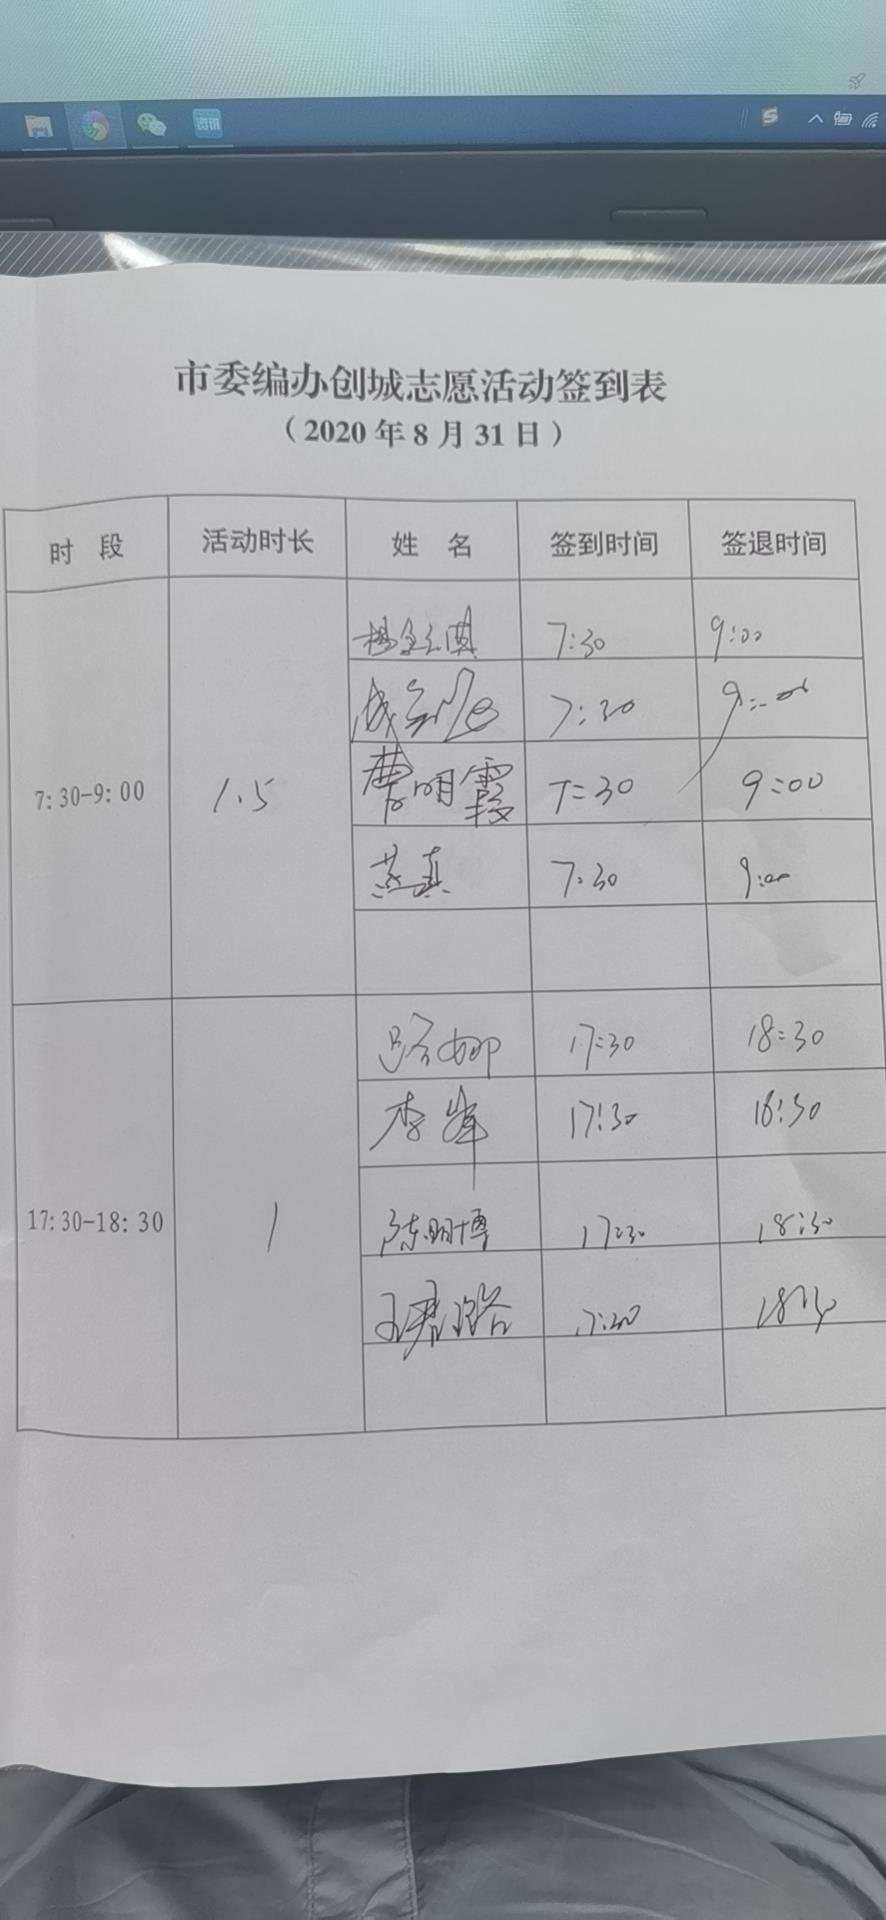 资讯
市委编办创城志愿活动签到表
（2020年8月31日）
时 段 活动时长 姓 名 签到时间 签退时间
7:30-9:00 1.5
7:30 9:00
7:30
曹明霞 7:30 9:00
燕真 7:30 9:00
17:30-18:30 1
路娜 17:30 18:30
李峰 17:30 18:30
陈明博 17:30 18:30
王君璐